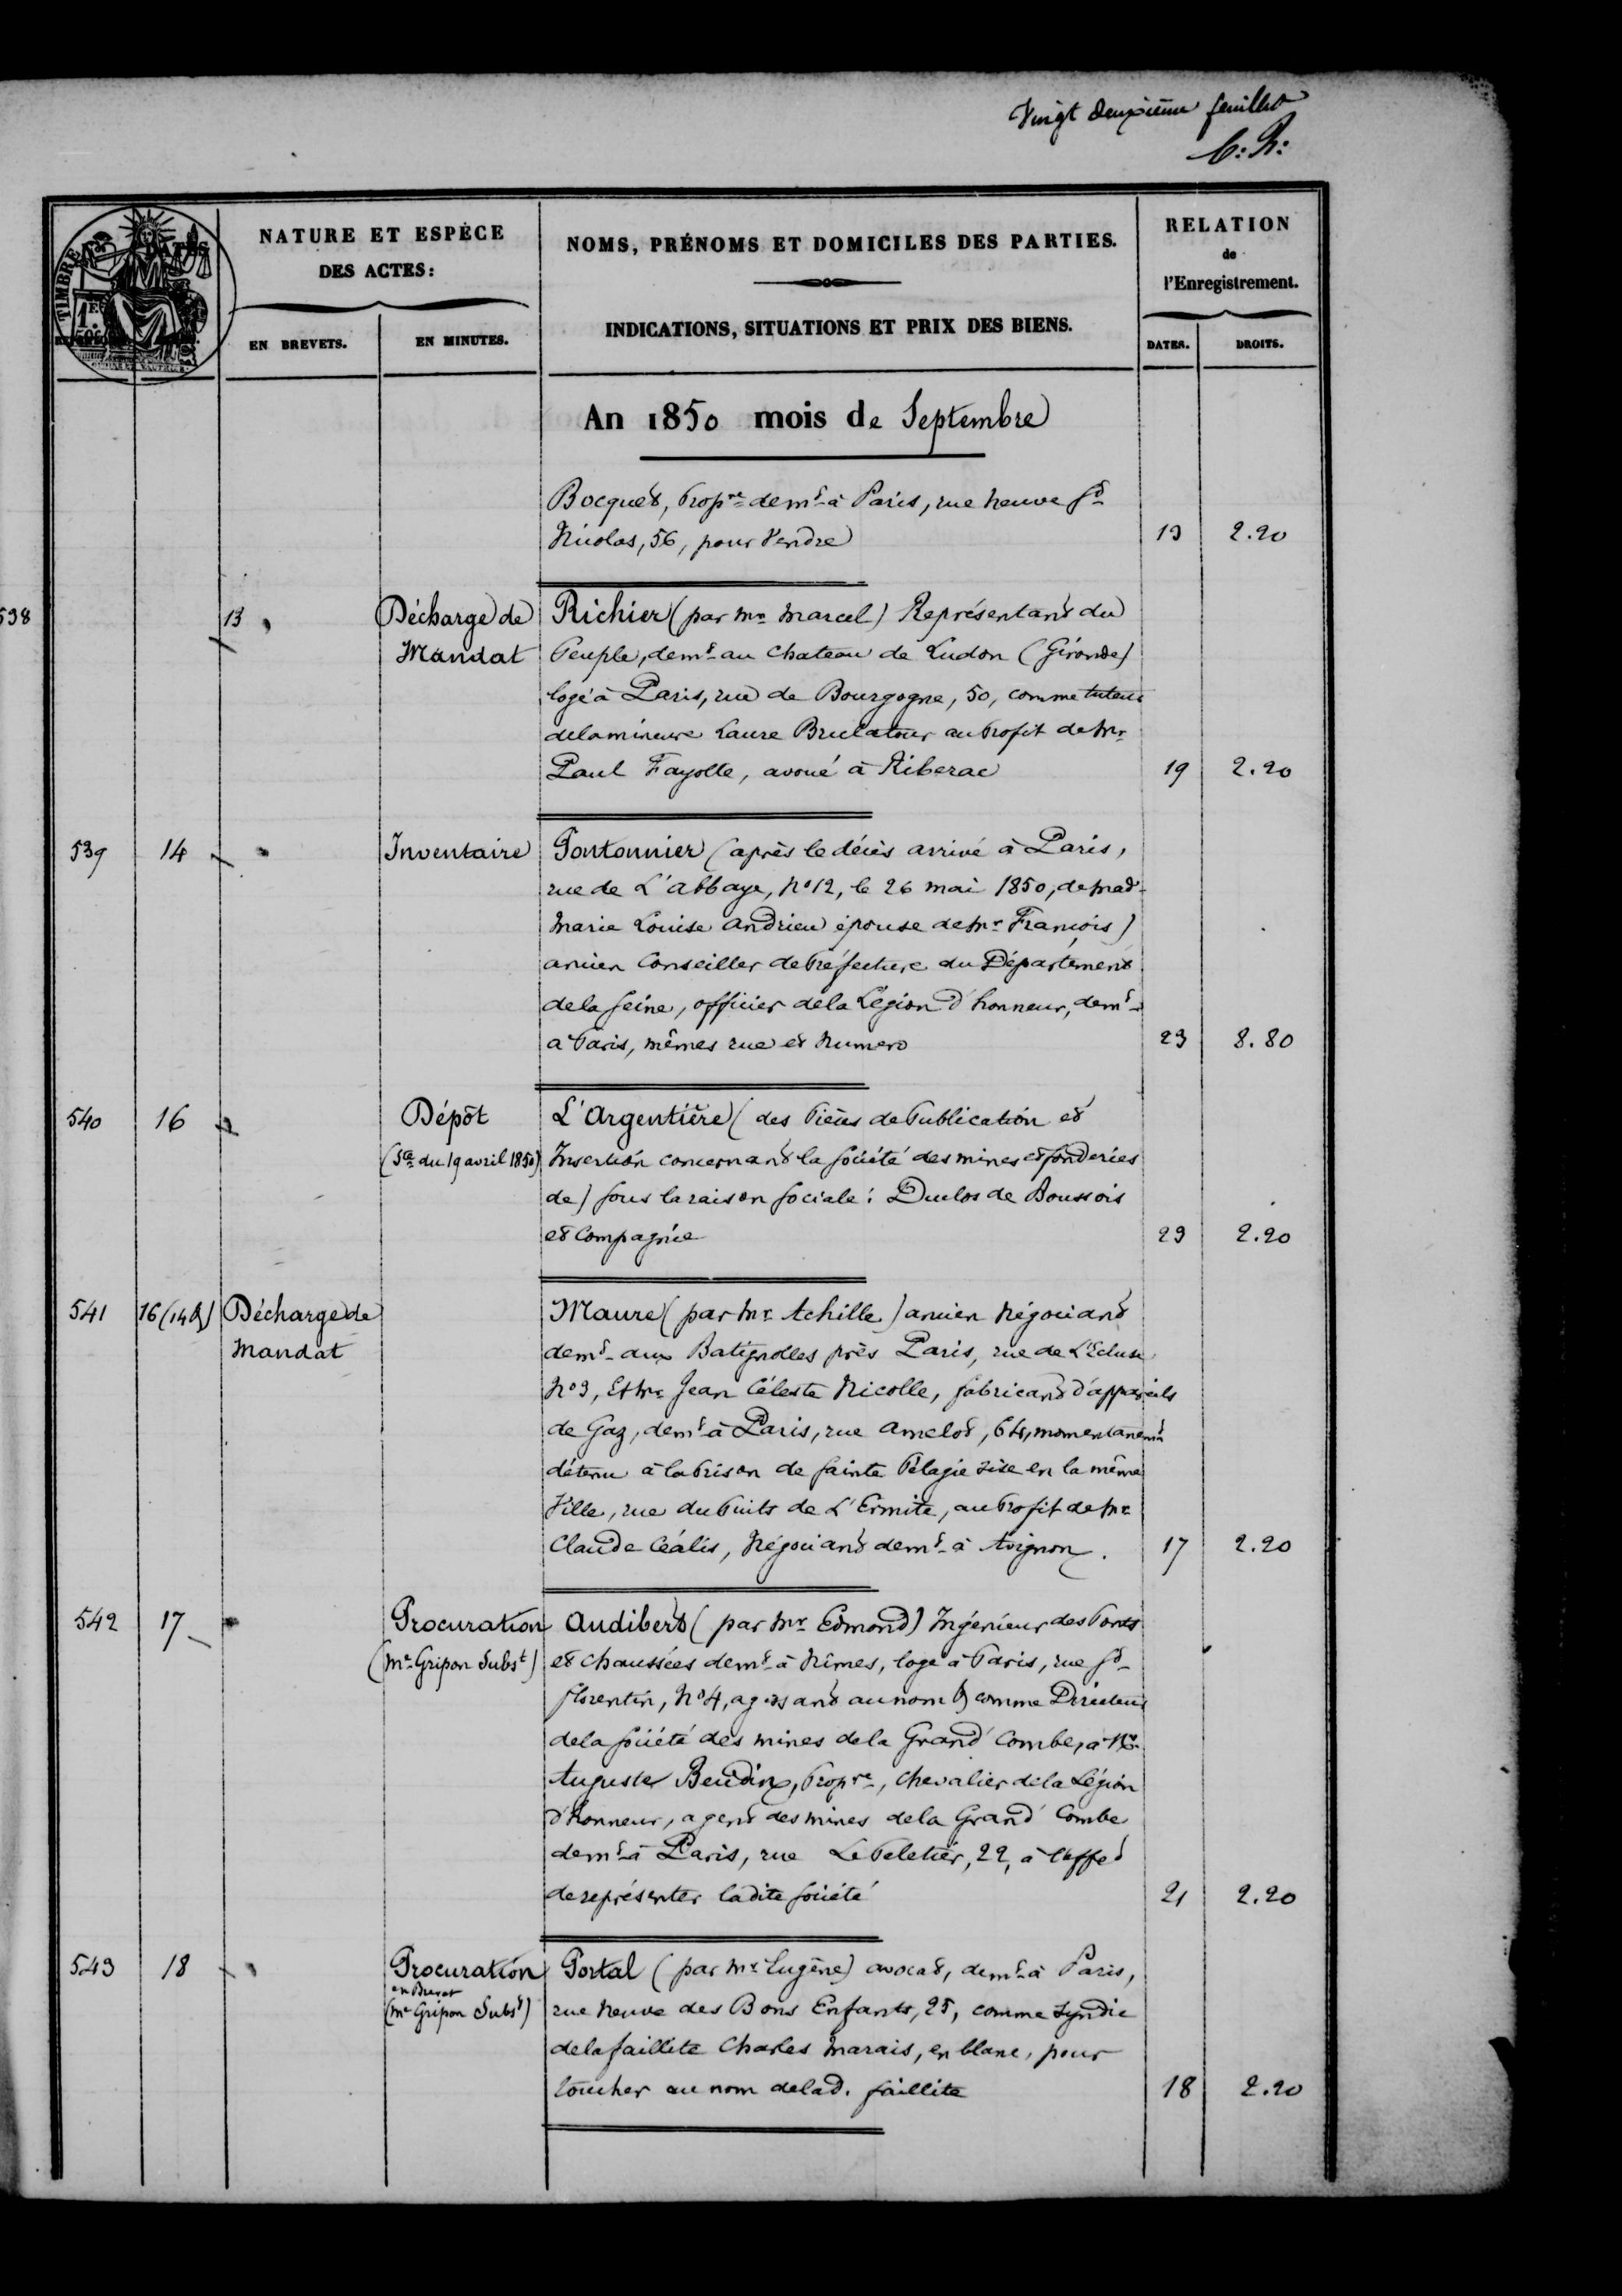 Vingt deuxième feuillet
TIMBRE
NATURE ET ESPÈCE
DES ACTES:
EN BREVETS.
EN MINUTES.
NOMS, PRÉNOMS ET DOMICILES DES PARTIES.
INDICATIONS, SITUATIONS ET PRIX DES BIENS.
RELATION
de
l'Enregistrement.
DATES.
DROITS.
An 1850 mois de Septembre
Bocquet, Propre demt à Paris, rue neuve St
Nicolas, 56, pour Vendre 13 2.20
538 13 Décharge de Richier (par Mr Marcel) Représentant du
Mandat Peuple, demt au Chateau de Ludon (Gironde)
logé à Paris, rue de Bourgogne, 50, comme tuteur
de la mineure Laure Brulatour au Profit de Mr
Paul Fayolle, avoué à Riberac 19 2.20
539 14 Inventaire Pontonnier (après le décès arrivé à Paris,
rue de L'abbaye, No 12, le 26 mai 1850, de Made
Marie Louise Andrieu épouse de Mr François)
ancien Conseiller de Préfecture du Département
de la Seine, officier de la Légion d'honneur, demt
a Paris, mêmes rue et Numero 23 8.80
540 16 Dépôt L'Argentière (des Pièces de Publication et
(Sce du 19 avril 1850) Insertion concernant la Société des mines et fonderies
de) Sous la raison Sociale: Duclos de Boussois
et Compagnie 23 2.20
541 16 (14 &) Décharge de Maure (par Mr Achille) ancien Négociant
Mandat demt aux Batignolles près Paris, rue de L'Ecluse
No 3, Et Mr Jean Céleste Nicolle, fabricant d'appareils
de Gaz, demt à Paris, rue Amelot, 64, momentanemt
détenu à la Prison de Sainte Pélagie sise en la même
Ville, rue du Puits de L'Ermite, au Profit de Mr
Claude Céalis, Négociant demt à Avignon. 17 2.20
542 17 Procuration Audibert (par Mr Edmond) Ingénieur des Ponts
(Me Gripon Subst) et chaussées demt à Nîmes, logé à Paris, rue St
florentin, No 4, agissant au nom & comme Directeur
de la Société des mines de la Grand' Combe, à Mr
Auguste Beudin, Propre, Chevalier de la Légion
d'honneur, agent des mines de la Grand' Combe
demt à Paris, rue Le Peletier, 22, à l'effet
de représenter ladite Société 21 2.20
543 18 Procuration Portal (par Mr Eugène) avocat, demt à Paris,
en Brevet
(Me Gripon Subst) rue Neuve des Bons Enfants, 25, comme Syndic
de la faillite Charles Marais, en blanc, pour
toucher au nom de lad. faillite 18 2.20